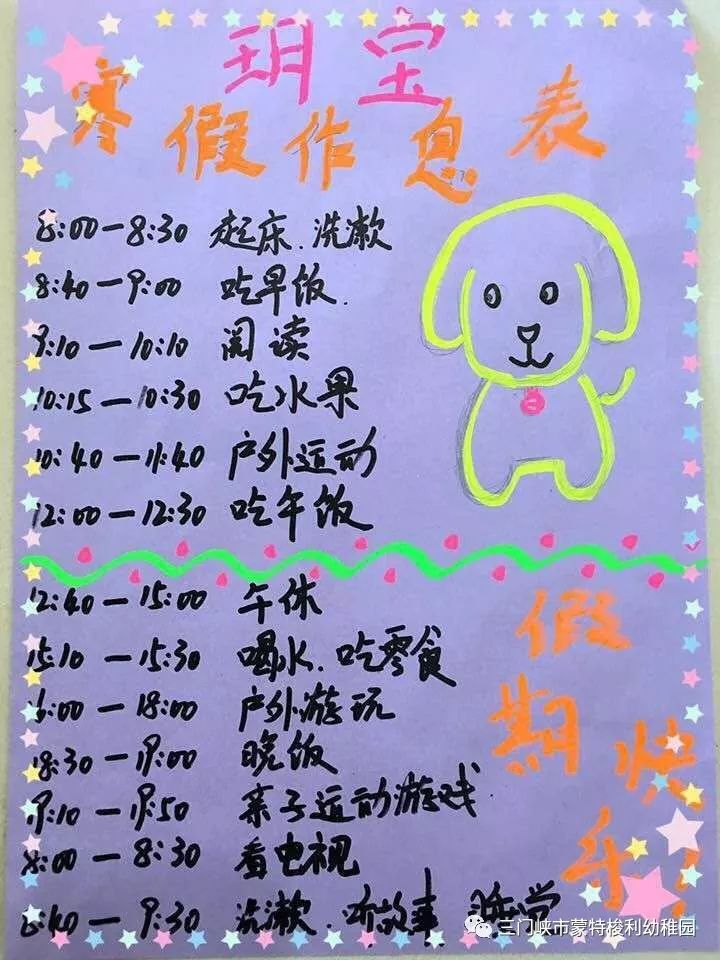 玥宝
寒假作息表
8:00—8:30 起床.洗漱
8:40—9:00 吃早饭.
9:10—10:10 阅读
10:15—10:30 吃水果
10:40—11:40 户外运动
12:00—12:30 吃午饭
12:40—15:00 午休
15:10—15:30 喝水.吃零食
16:00—18:00 户外游玩
18:30—19:00 晚饭
19:10—19:50 亲子运动游戏
8:00—8:30 看电视
8:40—9:30 洗漱.听故事.睡觉
假期快乐!
三门峡市蒙特梭利幼稚园